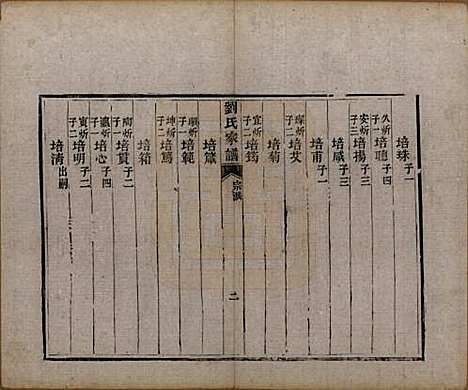 培珠子一
久炘子一
培聰子四
安炘子三
培揚子三
培咸子三
培甫子一
琛炘子二
培艾
培菊
宜炘子二
培筠
劉氏家譜
宗派
二
培箴
炘子一
培範
坤炘子二
培篤
培箱
南炘子一
培貫子二
瀛炘子一
培心子四
寅炘子二
培明子二
培清出嗣